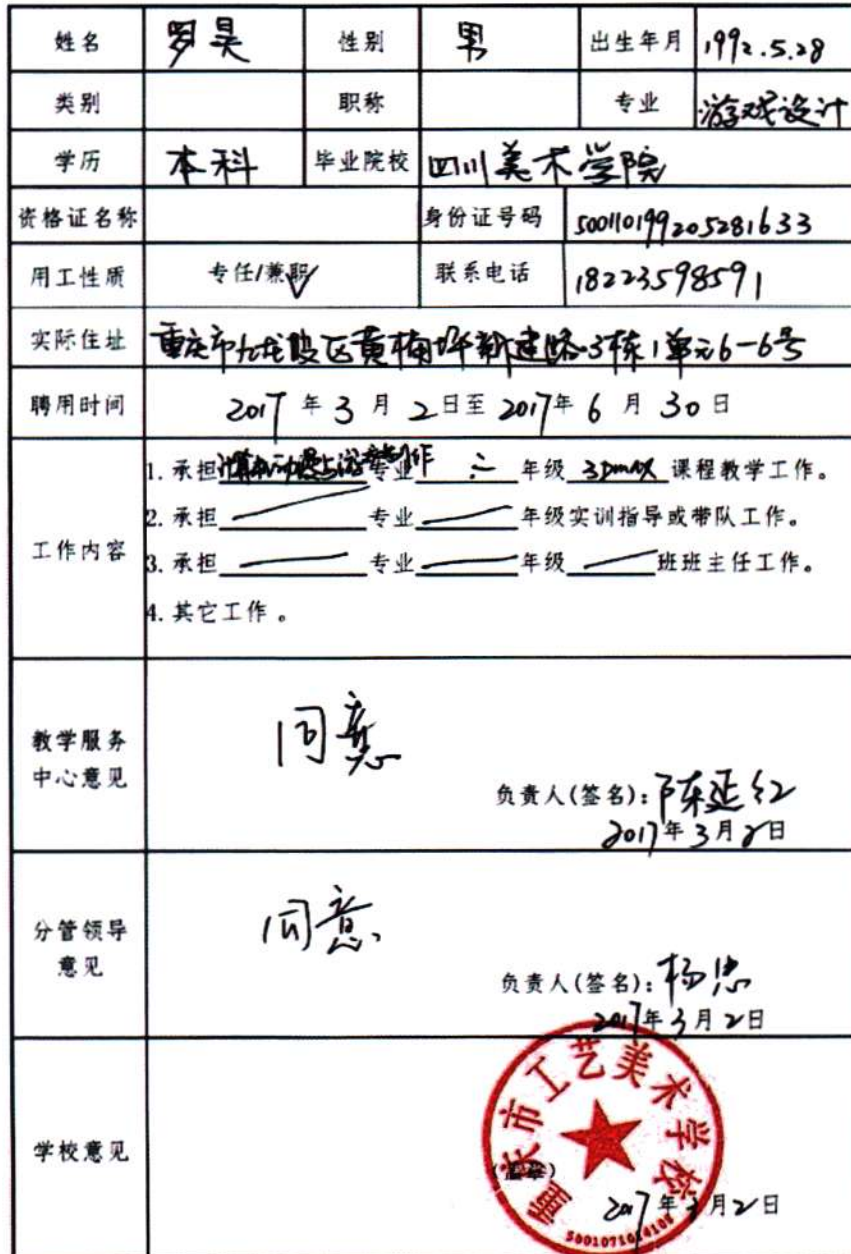 姓名 罗昊 性别 男 出生年月 1992.5.28
类别 职称 专业 游戏设计
学历 本科 毕业院校 四川美术学院
资格证名称 身份证号码 500110199205281633
用工性质 专任/兼职✓ 联系电话 18223598591
实际住址 重庆市九龙坡区黄桷坪新建路3栋1单元6-6号
聘用时间 2017年3月2日至2017年6月30日
工作内容
1.承担计算机动漫与游戏制作专业 二 年级 3Dmax 课程教学工作。
2.承担 专业 年级实训指导或带队工作。
3.承担 专业 年级 班班主任工作。
4.其它工作。
教学服务
中心意见
同意
负责人(签名):陈延红
2017年3月2日
分管领导
意见
同意
负责人(签名):杨忠
2017年3月2日
学校意见
重庆市工艺美术学校
(盖章)
2017年3月2日